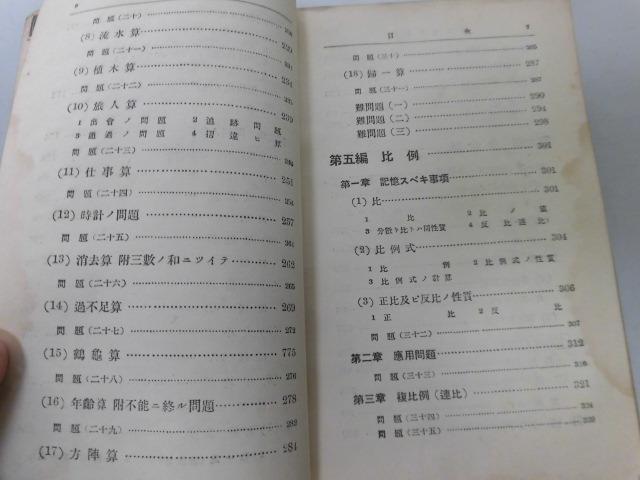 問題(二十)
(8) 流水算
問題(二十一)
(9) 植木算
問題(二十二)
(10) 旅人算
1 出會ノ問題 2 追跡問題
3 通過ノ問題
問題(二十三)
(11) 仕事算 251
問題(二十四) 254
(12) 時計ノ問題 257
問題(二十五)
(13) 消去算 附三數ノ和ニツイテ 262
問題(二十六) 265
(14) 過不足算 269
問題(二十七) 272
(15) 鶴龜算 775
問題(二十八) 276
(16) 年齡算 附不能ニ終ル問題 278
問題(二十九) 282
(17) 方陣算 284
目次 7
問題(三十) 285
(18) 歸一算 287
問題(三十一) 287
難問題(一) 290
難問題(二) 294
難問題(三) 298
第五編 比例 301
第一章 記憶スベキ事項 301
(1) 比 301
1 比 2 比ノ値
3 4 反比(逆比)
(2) 比例式 304
1 比例 2 比例式ノ性質
3 比例式ノ計算
(3) 正比及ビ反比ノ性質 306
1 正比 2 反比
問題(三十二) 307
第二章 應用問題 312
問題(三十三) 316
第三章 複比例(連比) 321
問題(三十四) 324
問題(三十五)